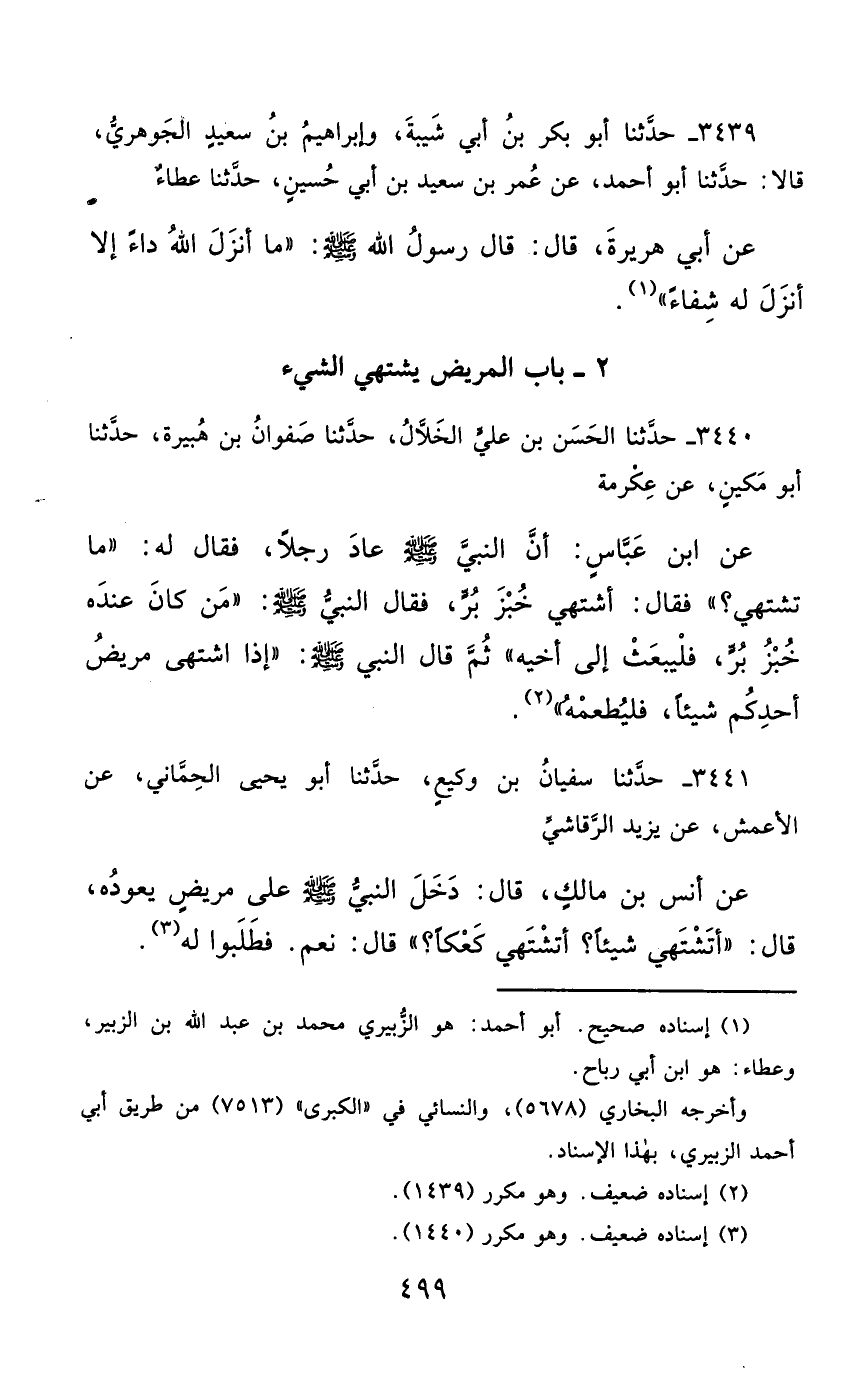 ٣٤٣٩ـ حدَّثنا أبو بكر بنُ أبي شَيبةَ، وإبراهيمُ بنُ سعيدٍ الجَوهريُّ،
قالا: حدَّثنا أبو أحمد، عن عُمر بن سعيد بن أبي حُسينٍ، حدَّثنا عطاءٌ
عن أبي هريرةَ، قال: قال رسولُ الله ﷺ: «ما أنزَلَ اللهُ داءً إلا
أنزَلَ له شِفاءً»(١).
٢ ـ باب المريض يشتهي الشيء
٣٤٤٠ـ حدَّثنا الحَسَن بن عليٍّ الخَلَّالُ، حدَّثنا صَفوانُ بن هُبيرة، حدَّثنا
أبو مَكينٍ، عن عِكْرمة
عن ابن عَبَّاسٍ: أنَّ النبيَّ ﷺ عادَ رجلاً، فقال له: «ما
تشتهي؟» فقال: أشتهي خُبْزَ بُرٍّ، فقال النبيُّ ﷺ: «مَن كانَ عندَه
خُبْزُ بُرٍّ، فلْيبعَثْ إلى أخيه» ثُمَّ قال النبي ﷺ: «إذا اشتهى مريضُ
أحدِكُم شيئاً، فليُطعمْهُ»(٢).
٣٤٤١ـ حدَّثنا سفيانُ بن وكيعٍ، حدَّثنا أبو يحيى الحِمَّاني، عن
الأعمش، عن يزيد الرَّقاشيِّ
عن أنس بن مالكٍ، قال: دَخَلَ النبيُّ ﷺ على مريضٍ يعودُه،
قال: «أتَشْتَهي شيئاً؟ أتشْتَهي كَعْكاً؟» قال: نعم. فطَلَبوا له(٣).
(١) إسناده صحيح. أبو أحمد: هو الزُّبيري محمد بن عبد الله بن الزبير،
وعطاء: هو ابن أبي رباح.
وأخرجه البخاري (٥٦٧٨)، والنسائي في «الكبرى» (٧٥١٣) من طريق أبي
أحمد الزبيري، بهٰذا الإسناد.
(٢) إسناده ضعيف. وهو مكرر (١٤٣٩).
(٣) إسناده ضعيف. وهو مكرر (١٤٤٠).
٤٩٩